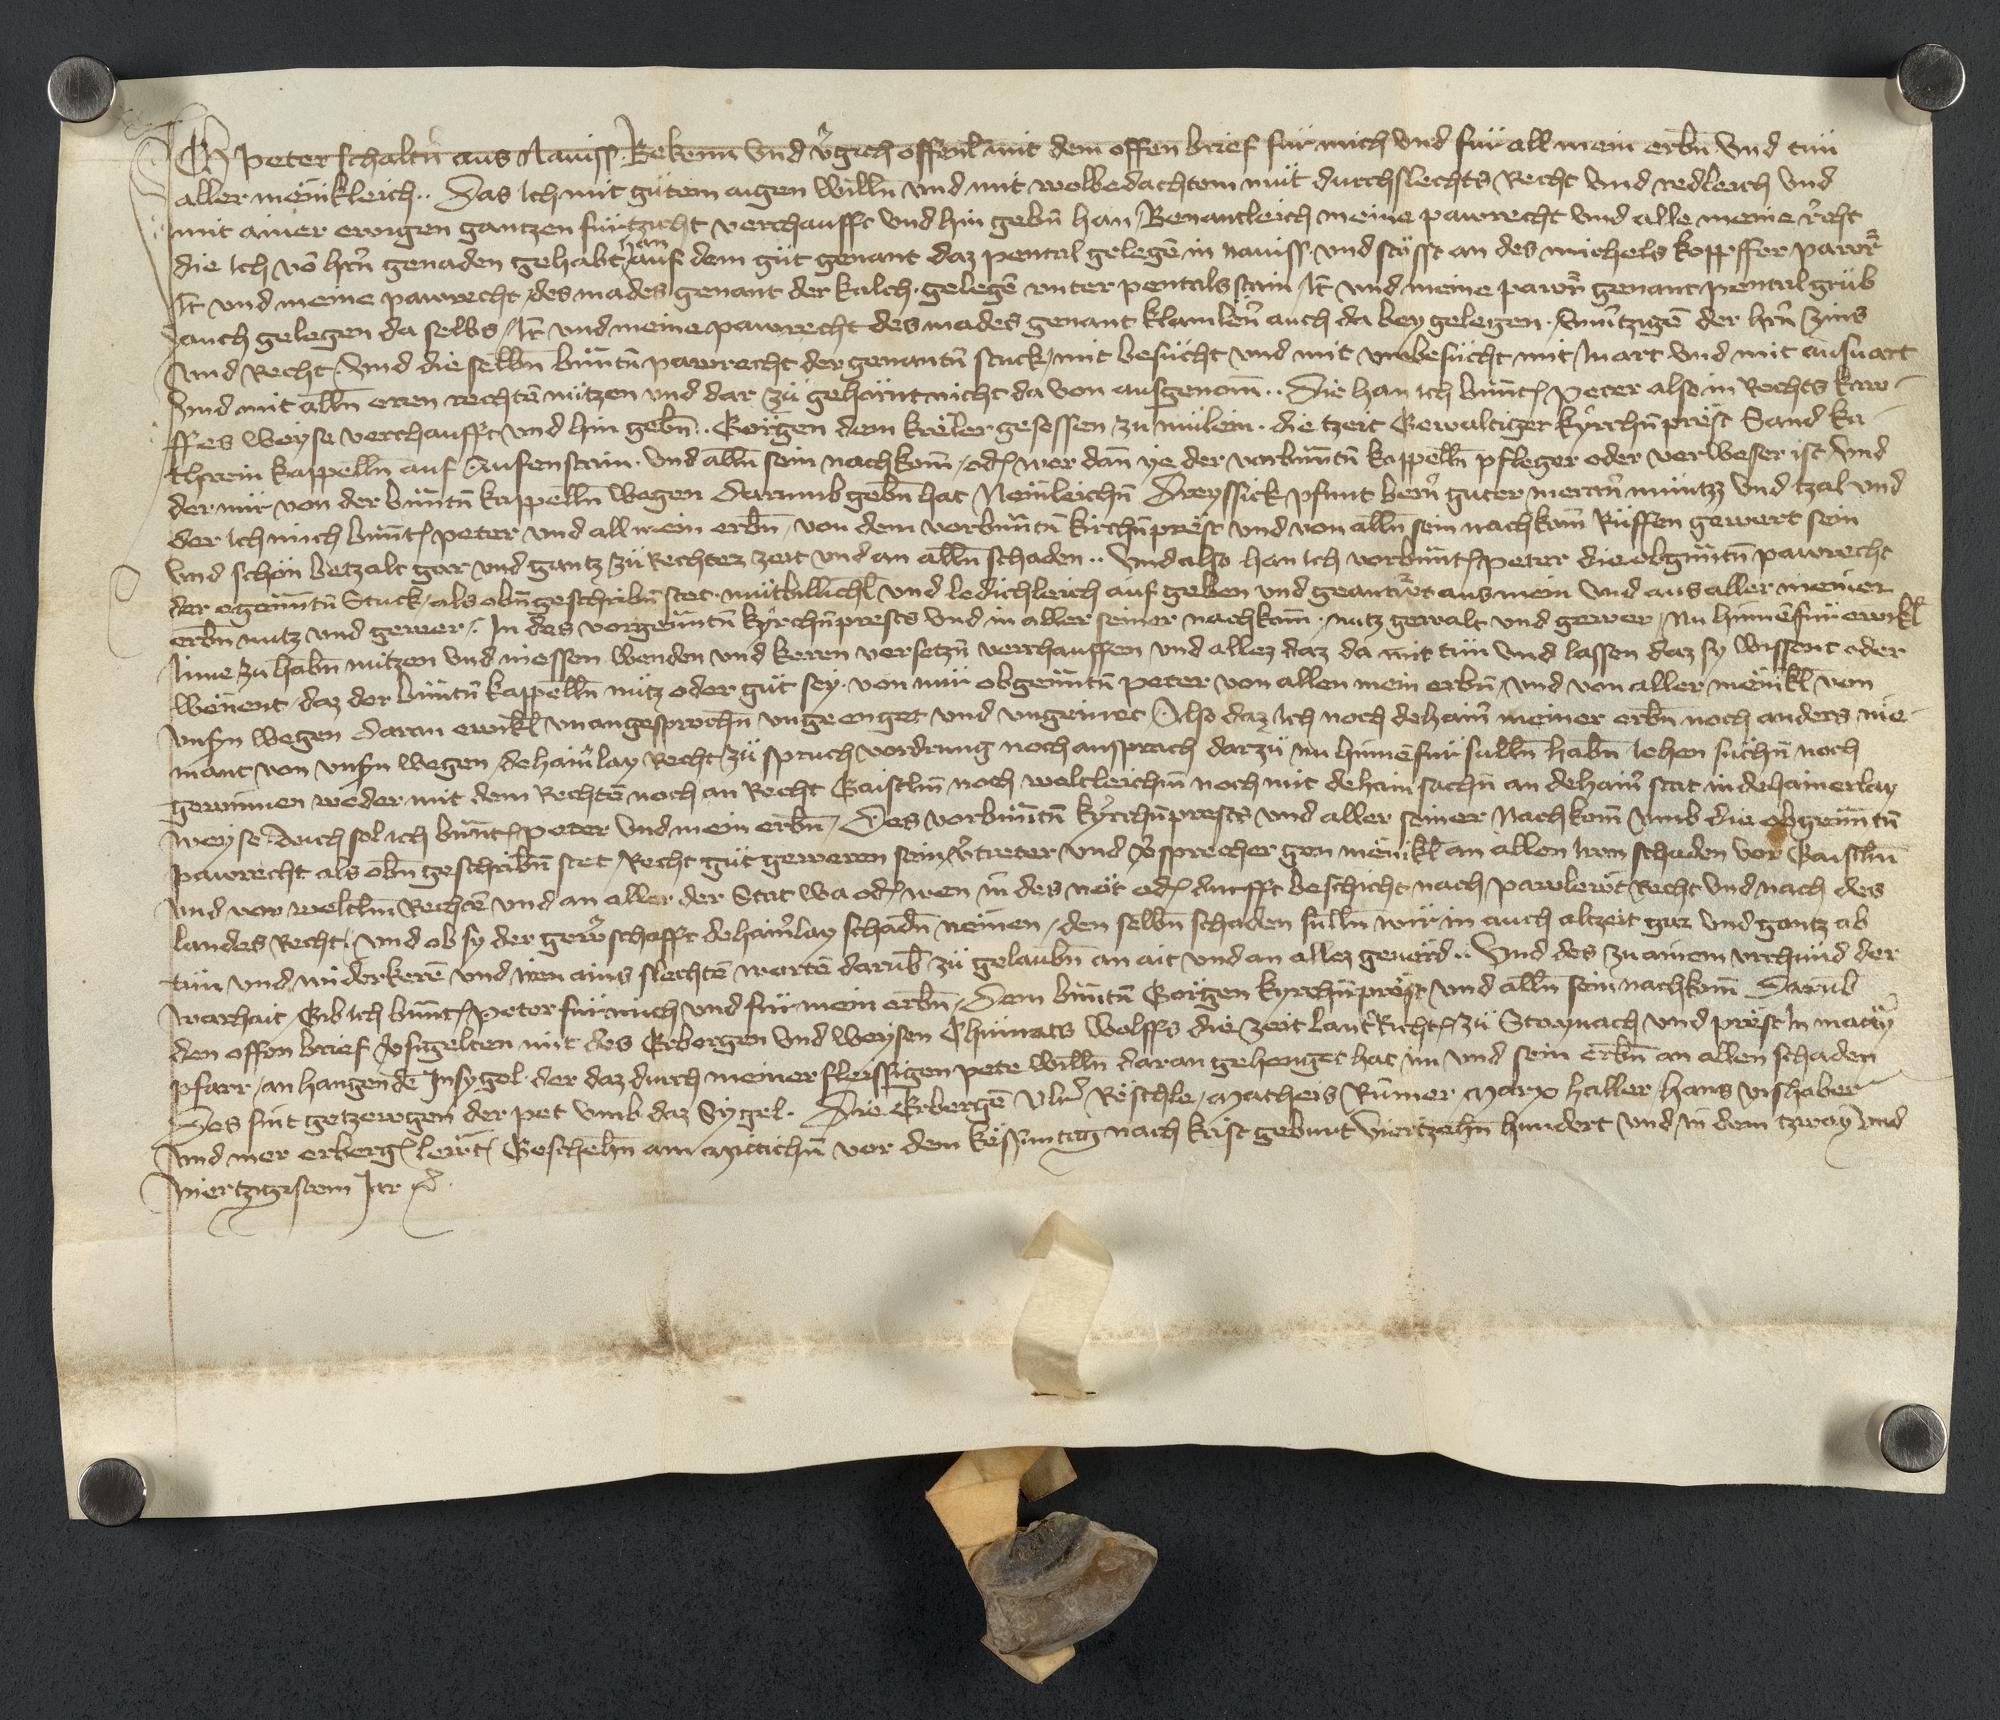 Ich peter schaltn̄ aus Naviss. Bekenn vnd v̓gich offenl̄ mit dem offen brief für mich vnd für all mein erbn̄ vnd tün
aller mēnikleich.. Das Ich mit gütem aigen willn̄ vnd mit wolbedachtem müt durchslechts Recht vnd redleich vnd
mit ainer ewigen gantzen fürtzicht verchaufft vnd hin gebn̄ han, Benantleich meine pawrecht vnd alle meine r̓cht
die Ich vō hr̄n genaden gehabt han auf dem güt genant daz pental gelegē in naviss. vnd stösst an des michels kopffer pawr̄
It̄ vnd meine pawrecht des mades genant der kalch. gelegē vnter pentalstain, It̄ vnd meine pawr̄ genant pentalgrüb
auch gelegen da selbs, It̄ vnd meine pawrecht des mades genant klamlen̄ auch da bey gelegen. vnu̓tzigē der hr̄n zins
vnd Recht. Vnd die selbn̄ bn̄ntn̄ pawrecht der genantn̄ stuck, mit besücht vnd mit vnbesücht mit Inuart vnd mit ausuart
vnd mit alln̄ eren rechtē nützen vnd dar zü gehörnt nicht da von ausgenom̄.. Die han ich bn̄nt͛ peter also in Rechts kaw-
ffes weyse verchaufft vnd hin gebn̄.. Görgen dem kröler gesessen zu mülein. die tzeit Gewaltiger kyrchn̄pröst Sand ka-
threin kappelln̄ auf Aufenstain. vnd alln̄ sein nachkom̄, od͛ wer dan̄ ye der vorbn̄ntn̄ kappelln̄ pfleger oder verweser ist, vnd
der mir von der bn̄ntn̄ kappelln̄ wegen darumb gebn̄ hat Nemleichn̄ Dreyssick pfunt bern̄ guter meran̄ müntzz vnd tzal vnd
der Ich mich bn̄nt͛ peter vnd all mein erbn̄, von dem vorbn̄ntn̄ kirchn̄pröst vnd von alln̄ sein nachkom̄ Rüffen gewert sein
vnd schön betzalt gar vnd gantz zü Rechter zeit vnd an alln̄ schaden.. Vnd also han Ich vorbn̄nt͛ peter die obgn̄ntn̄ pawrecht
der egen̄ntn̄ Stuck, als obn̄ geschribn̄ stet. mütbillichl̄ vnd ledichleich auf geben vnd geantw̓t aus mein vnd aus aller meiner
erbn̄ nutz vnd gewer,. In des vorgen̄ntn̄ kyrchn̄prests vnd in aller seiner nachkom̄. nutz gewalt vnd gewer, Nu hinnēfür ewikl̄
Inne zu habn̄ nützen vnd niessen. wenden vnd keren versetzn̄ verchauffen vnd allez daz da mit tün vnd lassen daz sy wissent oder
wēnent, daz der bn̄ntn̄ kappelln̄ nütz oder güt sey. von mir obgen̄ntn̄ peter von allen mein erbn̄, vnd von aller mēnikl̄ von
vnsn̄ wegen daran ewikl̄ vnangesprochn̄ vngeenget vnd vngeirret Also daz Ich noch dehain̓ meiner erbn̄ noch anders nie-
mant von vnsn̄ wegen, dehain̓lay Recht, zü spruch vordrung noch ansprach darzü nu hinnēfür sulln̄ habn̄. Iehen süchn̄ noch
gewinnen weder mit dem Rechtē noch an Recht Gaistln̄ noch weltleichn̄ noch mit dehain sachn̄ an dehain̓ stat in dehainerlay
weyse. Auch sol ich bn̄nt͛ peter vnd mein erbn̄, Des vorbn̄ntn̄ kyrchn̄prests vnd aller seiner Nachkom̄ vmb die obgen̄ntn̄
pawrecht als obn̄ geschribn̄ stet, Recht güt geweren sein, v̓treter vnd v̓sprecher gen mēnikl̄ an allen Iren schaden vor Gaistln̄
vnd vor weltln̄ Rechtē vnd an aller der Stat wa od͛ wen in̄ des nöt od͛ durfft beschicht nach pawlewt Recht vnd nach des
landes Recht, vnd ob sy der gew̓schafft dehain̓lay schadn̄ nēmen, den selbn̄ schaden sulln̄ wir in auch altzeit gar vnd gantz ab
tün vnd widerkerē vnd iren ains slechtē wortē darūb zü gelaubn̄ an ait vnd an allez geuerd.. Vnd des zu ainem vrchünd der
warhait, Gib Ich bn̄nt͛ peter für mich vnd für mein erbn̄, Dem bn̄ntn̄ Görgen kyrchn̄pröst vnd alln̄ sein nachkom̄ Darūb
den offen brief v̓sigelten mit des Erbergen vnd weysen Chünrats Wolffs die zeit lant̓Richt͛ zü Steynach vnd pröst In matray̓
pfarr, an hangendē Insygel. der daz durch meiner fleissigen pete willn̄ daran gehenget hat im vnd sein erbn̄ an allen schaden
Des sint getzewgen der pet vmb daz Sygel. Die Erbergē Vlr̄ Röschle, Matheis Rümer Marx haller, hans vishaber
vnd mer erberg͛ lewt͛ Geschehn̄ am Mittichn̄ vor dem kässuntag nach krist geburt Viertzehn̄ hundert vnd in dem tzway vnd
viertzigistem Jar ꝛc̄.